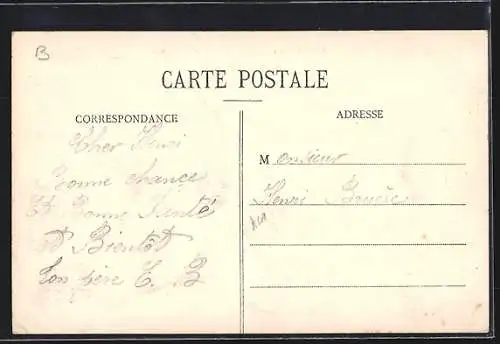 B
CARTE POSTALE
CORRESPONDANCE
ADRESSE
Cher Henri
Bonne chance
Et Bonne Santé
Bientôt
Ton père E. B
Monsieur
Henri